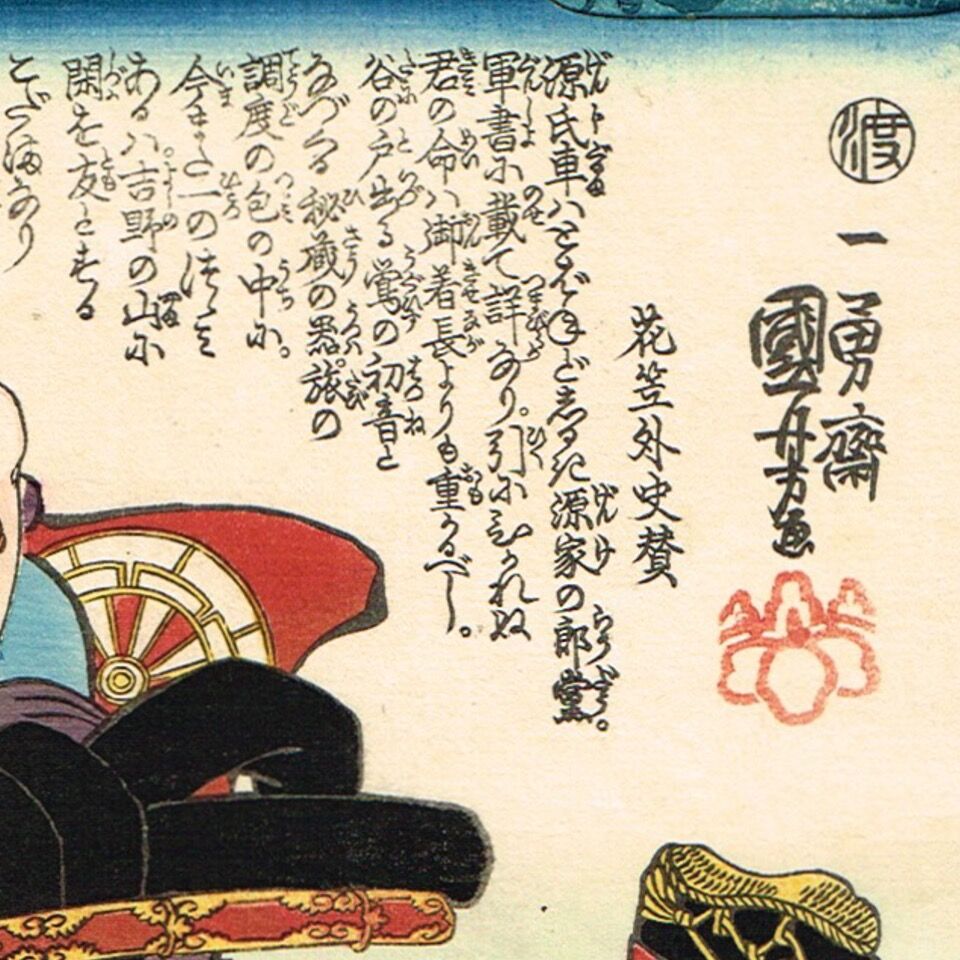 渡
一勇齋
國芳画
花笠外史賛
源氏車ハとはねど志るき源家の郎黨。
軍書に載て詳なり。引にひかれぬ
君の命ハ御着長よりも重かるべし。
谷の戸出る鶯の初音と
なづる秘蔵の器。旅の
調度の包の中に。
今また一のつゞみ
ある八吉野の山に
閑を友とする
こだまなり